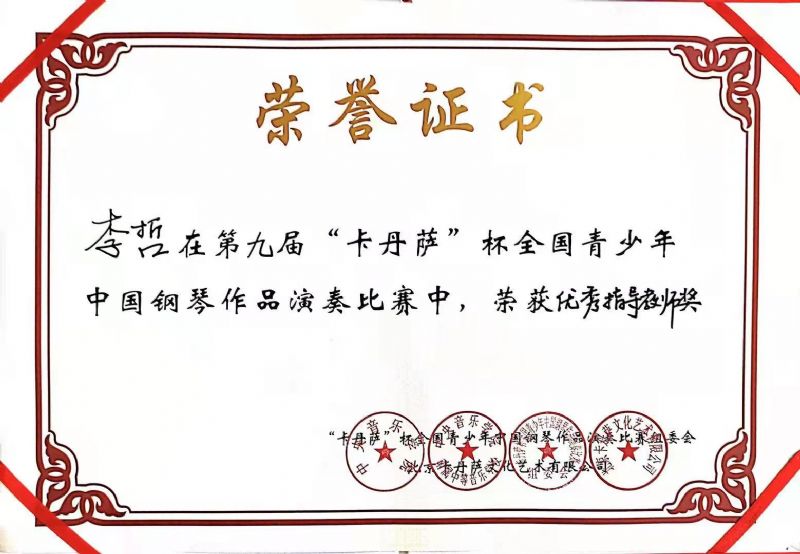 荣誉证书
李哲在第九届“卡丹萨”杯全国青少年
中国钢琴作品演奏比赛中，荣获优秀指导教师奖
“卡丹萨”杯全国青少年中国钢琴作品演奏比赛组委会
北京卡丹萨文化艺术有限公司
中央音乐学院